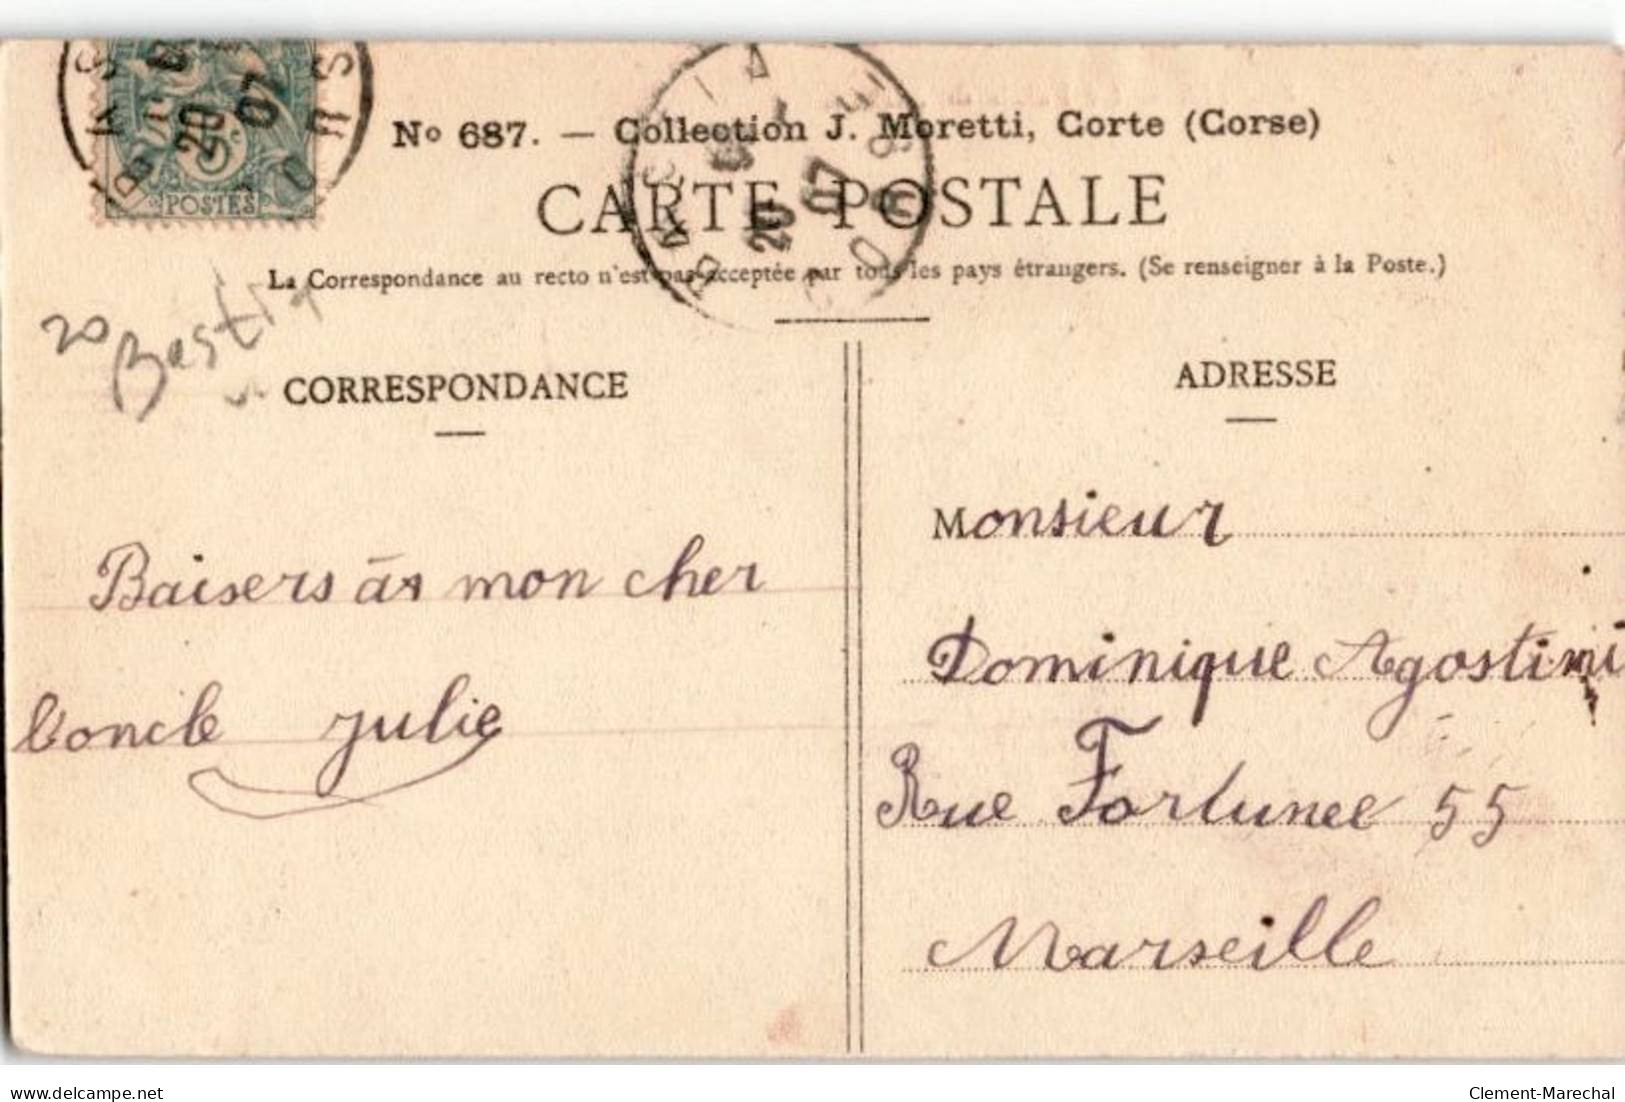 No 687. — Collection J. Moretti, Corte (Corse)
CARTE POSTALE
La Correspondance au recto n'est pas acceptée par tous les pays étrangers. (Se renseigner à la Poste.)
POSTES
20
07
20
07
20 Bastia
CORRESPONDANCE
Baisers à mon cher
oncle Julie
ADRESSE
Monsieur
Dominique Agostini
Rue Fortunee 55
Marseille
delcampe.net
Clement-Marechal